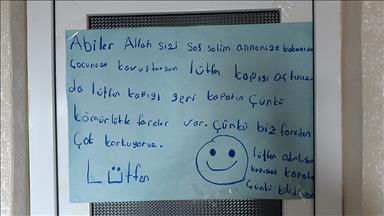 Abiler Allah sizi sağ salim annenize babanıza
çocunuza kavuştursun lütfen kapıyı
da lütfen kapıyı geri kapatın çünkü
kömürlükte fareler var. Çünkü biz fareden
çok korkuyoruz.
Lütfen
lütfen
kapıyı
çünkü